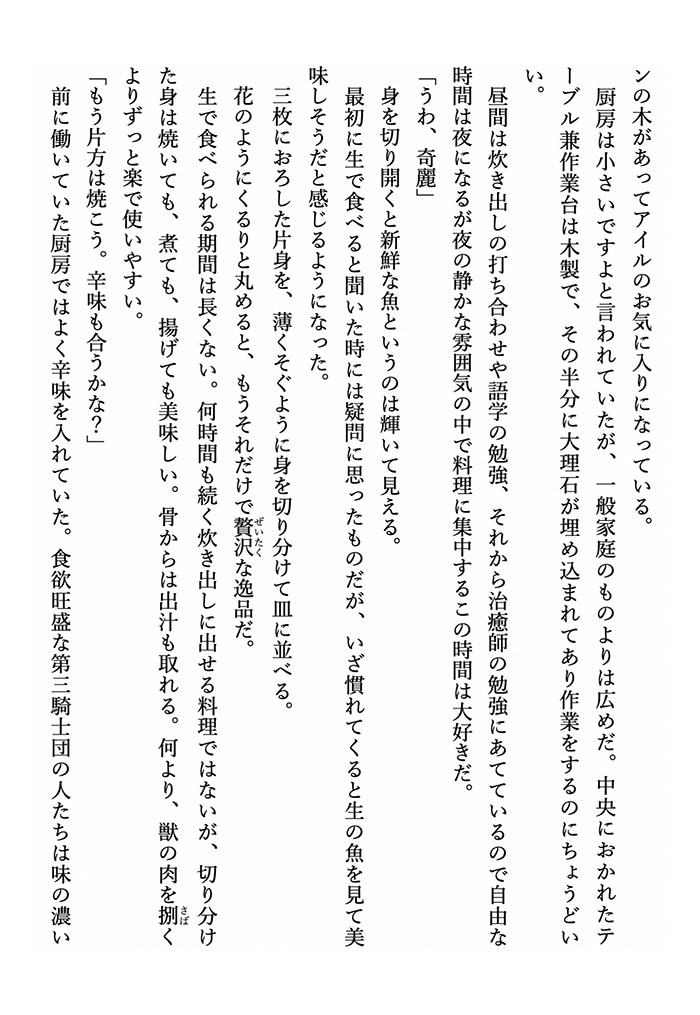 ンの木があってアイルのお気に入りになっている。
　厨房は小さいですよと言われていたが、一般家庭のものよりは広めだ。中央におかれたテ
ーブル兼作業台は木製で、その半分に大理石が埋め込まれてあり作業をするのにちょうどい
い。
　昼間は炊き出しの打ち合わせや語学の勉強、それから治癒師の勉強にあてているので自由な
時間は夜になるが夜の静かな雰囲気の中で料理に集中するこの時間は大好きだ。
「うわ、奇麗」
　身を切り開くと新鮮な魚というのは輝いて見える。
　最初に生で食べると聞いた時には疑問に思ったものだが、いざ慣れてくると生の魚を見て美
味しそうだと感じるようになった。
　三枚におろした片身を、薄くそぐように身を切り分けて皿に並べる。
　花のようにくるりと丸めると、もうそれだけで贅沢な逸品だ。
　生で食べられる期間は長くない。何時間も続く炊き出しに出せる料理ではないが、切り分け
た身は焼いても、煮ても、揚げても美味しい。骨からは出汁も取れる。何より、獣の肉を捌く
よりずっと楽で使いやすい。
「もう片方は焼こう。辛味も合うかな？」
　前に働いていた厨房ではよく辛味を入れていた。食欲旺盛な第三騎士団の人たちは味の濃い